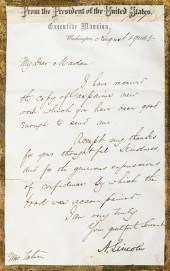 From the President of the United States.
Executive Mansion,
Washington, August 1863
My dear Madam
I have received
the copy of
new
which you have been good
enough to send me
Accept my thanks
for your thoughtful kindness,
and for the generous expressions
of confidence by which the
book was accompanied
I am very truly
Your grateful Servant
A. Lincoln
Mrs.